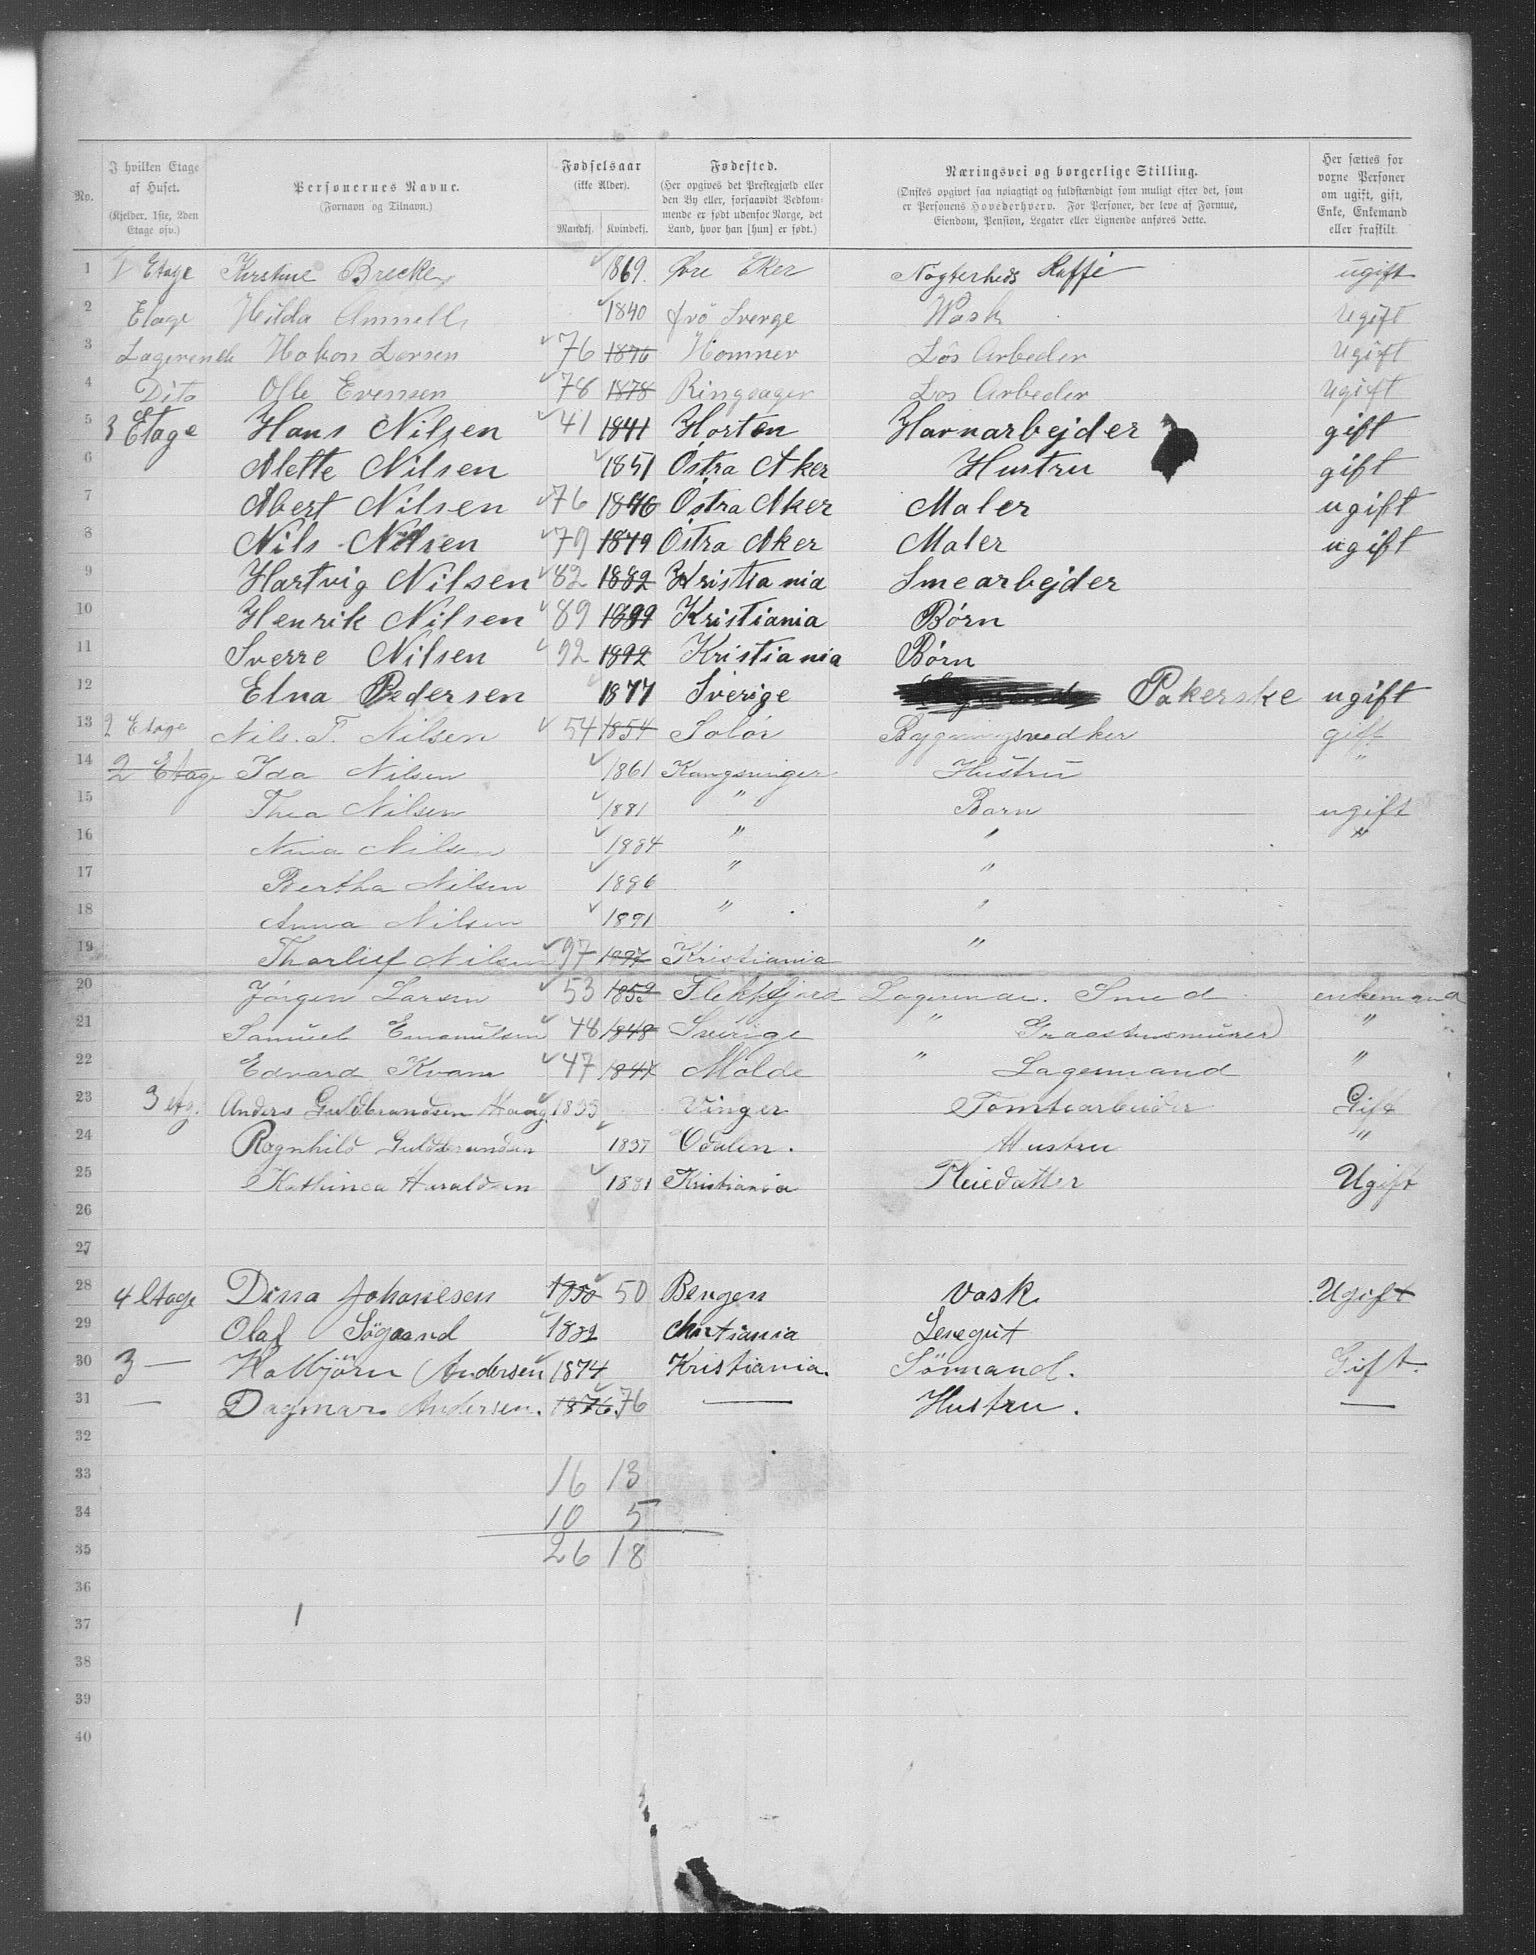 No. I hvilken Etage af Huset. (Kjelder, 1ste, 2den Etage osv.) Personernes Navne. (Fornavn og Tilnavn.) Fødselsaar (ikke Alder). Mandkj. Kvindekj. Fødested. (Her opgives det Prestegjæld eller den By eller, forsaavidt Bedkommende er født udenfor Norge, det Land, hvor han [hun] er født.) Næringsvei og borgerlige Stilling. (Ønskes opgivet saa nøiagtigt og fuldstændigt som muligt efter det, som er Personens Hovederhverv. For Personer, der leve af Formue, Eiendom, Pension, Legater eller Lignende anføres dette.) Her sættes for voxne Personer om ugift, gift, Enke, Enkemand eller fraskilt.
1 1 Etage Kirstine Brecke 1869. Øvre Eker Nøgterheds Kaffé ugift
2 Etage Hilda 1840 Sverge Wask Ugift
3 Lagerende Hakon Larsen 76 1876 Homner Lös Arbeder Ugift
4 Dito Olle Evensen 78 1878 Ringsager Los Arbeder Ugift
5 3 Etage Hans Nilsen 41 1841 Horten Havnarbejder gift
6 Alette Nilsen 1851 Östra Aker Hustru gift
7 Albert Nilsen 76 1876 Östra Aker Maler ugift
8 Nils Nilsen 79 1879 Östra Aker Maler ugift
9 Hartvig Nilsen 82 1882 Kristiania Smearbejder
10 Henrik Nilsen 89 1889 Kristiania Børn
11 Sverre Nilsen 92 1892 Kristiania Børn
12 Elna Pedersen 1877 Sverige Pakerske ugift
13 2 Etage Nils. F. Nilsen 54 1854 Solör gift
14 2 Etage Ida Nilsen 1861 Kongsvinger Hustru "
15 Thea Nilsen 1881 " Barn ugift
16 Nina Nilsen 1884 " " "
17 Bertha Nilsen 1886 " "
18 Anna Nilsen 1891 " "
19 Thorlief Nilsen 97 1897 Kristiania "
20 Jörgen Larsen 53 1853 Flekkfjord Lagerende. Smed enkemand
21 Samuel Emanulsen 48 1848 Sverige " "
22 Edvard Kvam 47 1847 Molde " Lagermand "
23 3 etg. Anders Guldbrandsen Haug 1835 Vinger Tomtearbeider Gift
24 Ragnhild Guldbrandsen 1837 Odalen. Hustru "
25 Kathinca Haraldsen 1881 Kristiania Pleiedatter Ugift
26
27
28 4 Etage Dina Johanesen 1850 50 Bergen Vask Ugift
29 Olaf Sögaard 1882 Christiania
30 3 — Kolbjörn Andersen 1874 Kristiania. Sömand. Gift.
31 — Dagmar Andersen. 1876 76 — Hustru. —
32
33 16 13
34 10 5
35 26 18
36
37 1
38
39
40